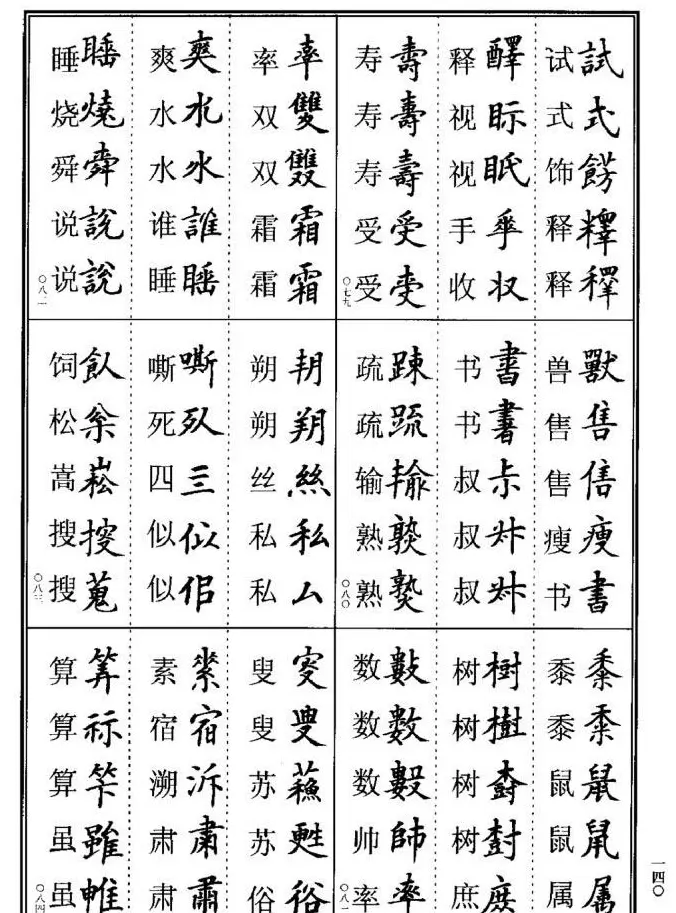 試式餝
试式饰释释
醳眎眂
释视视手收
壽壽壽受
寿寿寿受受
〇七九
獸售信瘦書
兽售售瘦书
書書尗
书书叔叔叔
踈䟽
疏疏输熟熟
〇八〇
黍黍鼠鼠属
黍黍鼠鼠属
樹樹庶
树树树树庶
數數師率
数数数帅率
〇八一
率雙雙霜霜
率双双霜霜
爽水氷誰睡
爽水水谁睡
睡燒舜說說
睡烧舜说说
〇八二
朔朔絲私厶
朔朔丝私私
嘶三似佀
嘶死四似似
飤枀
饲松嵩搜搜
〇八三
叟蘓甦俗
叟叟苏苏俗
宿泝肅
素宿溯肃肃
筭祘笇雖
算算算虽虽
〇八四
一四〇